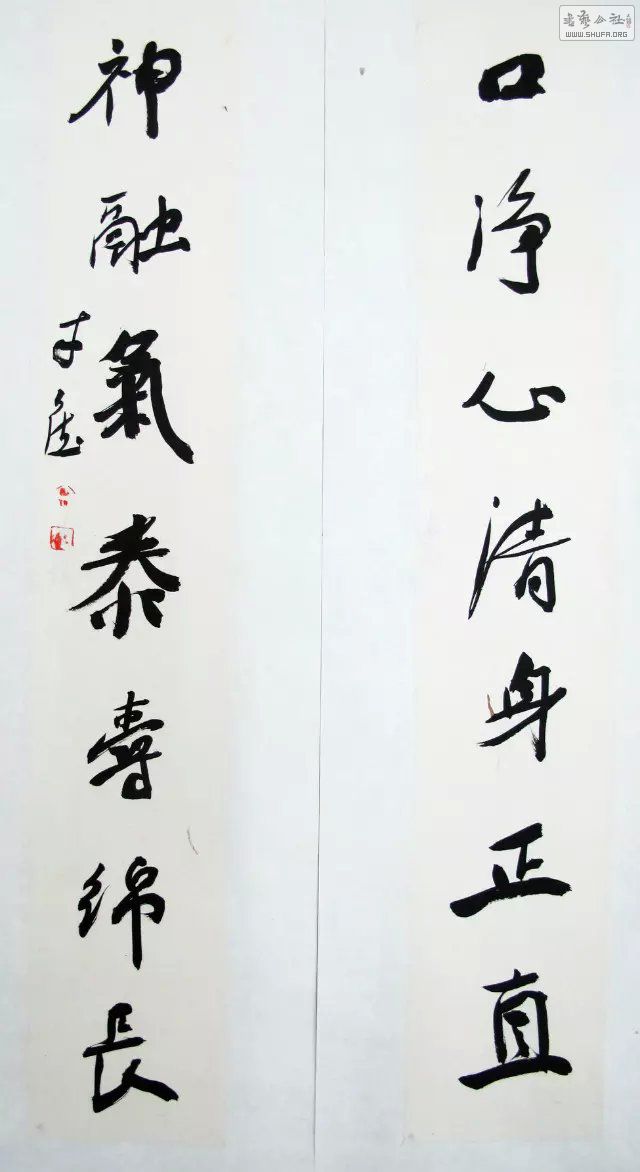 口净心清身正直
神融氣泰壽綿長
書藝公社
WWW.SHUFA.ORG